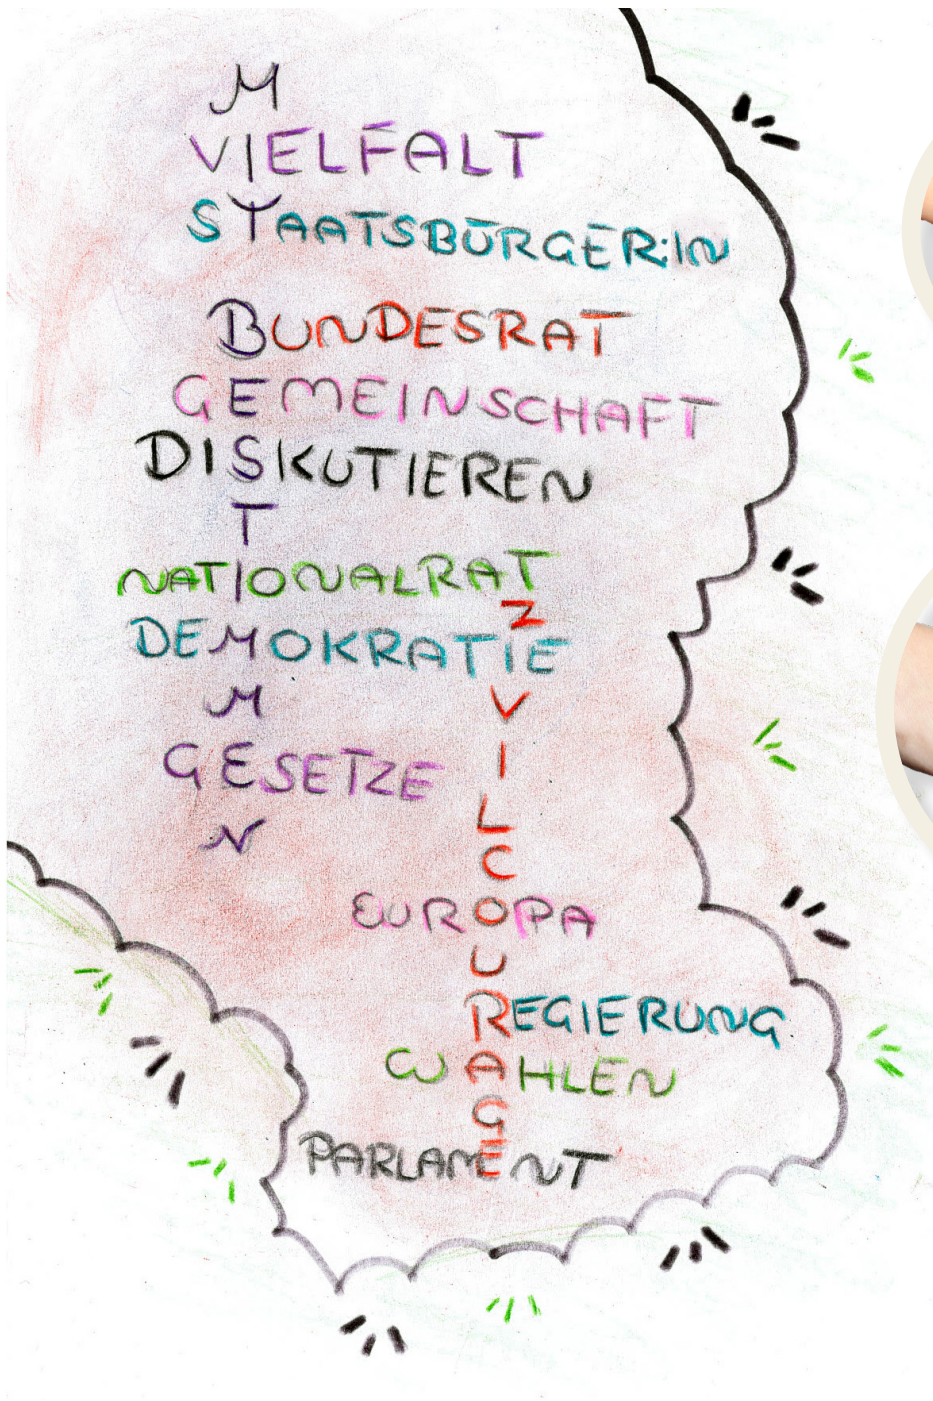 M
VIELFALT
STAATSBÜRGER:IN
BUNDESRAT
GEMEINSCHAFT
DISKUTIEREN
T
NATIONALRAT
Z
DEMOKRATIE
M V
I
GESETZE
L
N
C
EUROPA
U
REGIERUNG
WAHLEN
G
PARLAMENT